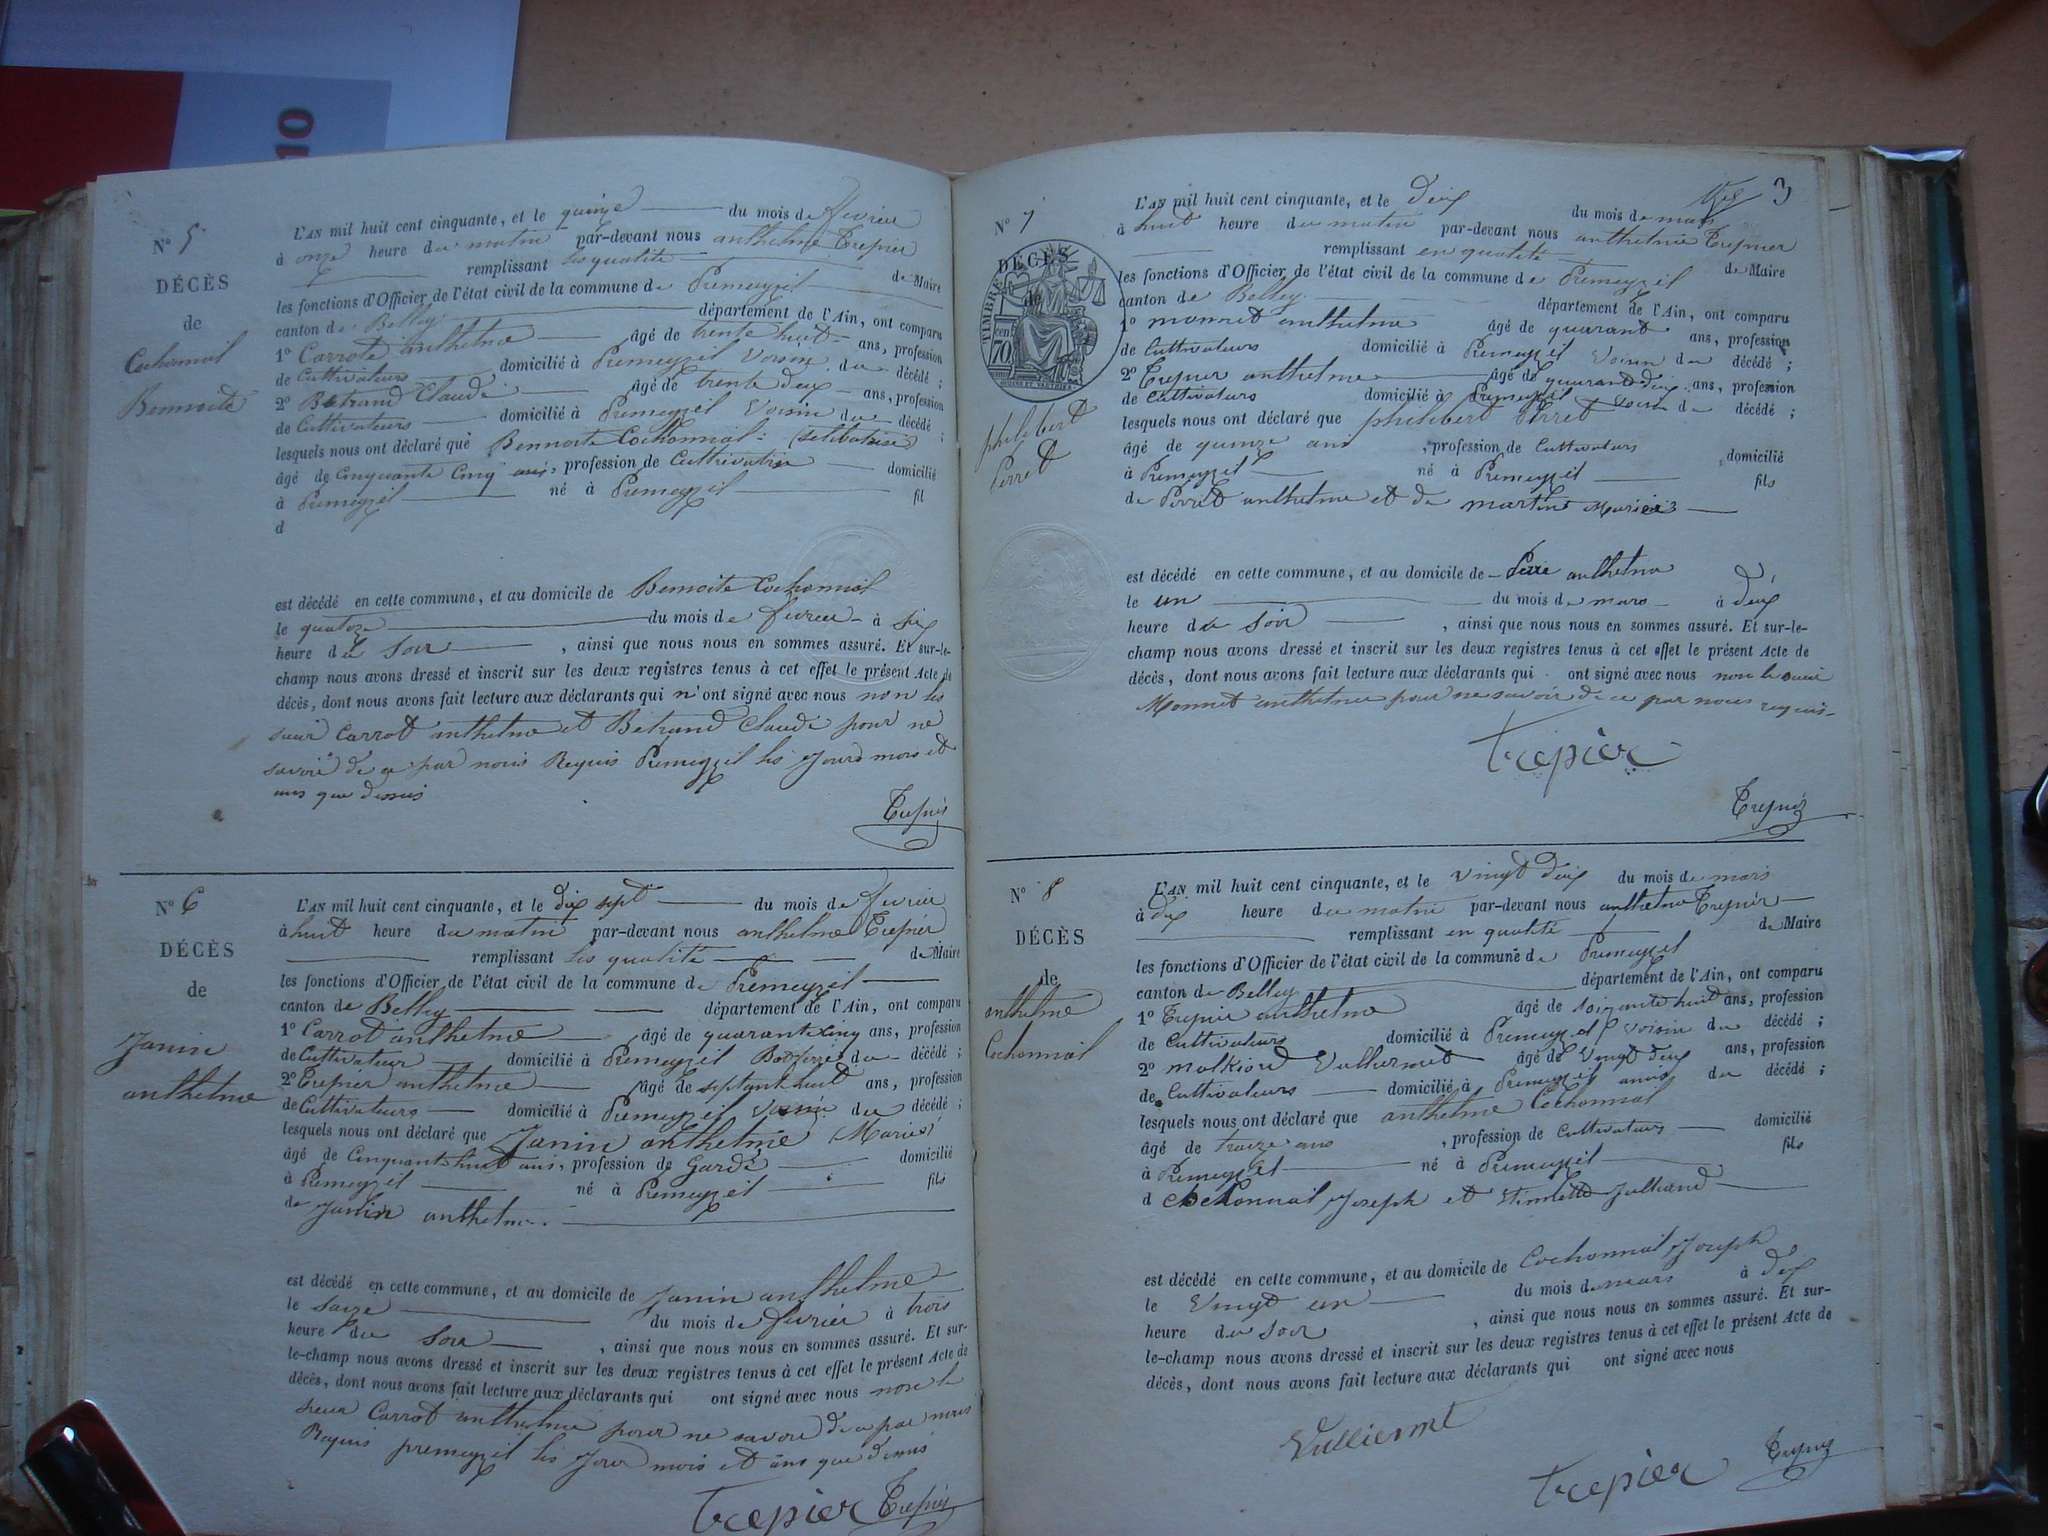 10
N° 5
DÉCÈS
de
Cochonnat
Bennoite
L'AN mil huit cent cinquante, et le quinze du mois de fevrier
à onze heure du matin par-devant nous anthelme Trepier
remplissant les qualité de Maire
les fonctions d'Officier de l'état civil de la commune de Premeyzel
canton de Belley département de l'Ain, ont comparu
1° Carrote anthelme âgé de trente huit ans, profession
de Cultivateurs domicilié à Premeyzel Voisin du décédé ;
2° Betrand Claude âgé de trente deux ans, profession
de Cultivateurs domicilié à Premeyzel Voisin du décédé ;
lesquels nous ont déclaré que Bennoite Cochonnat
âgé de Cinquante Cinq ans, profession de Cultivatrice domicilié
à Premeyzel né à Premeyzel fil
d
est décédé en cette commune, et au domicile de Bennoite Cochonnat
le quatoze du mois de fevrier à six
heure du soir, ainsi que nous nous en sommes assuré. Et sur-le-
champ nous avons dressé et inscrit sur les deux registres tenus à cet effet le présent Acte de
décès, dont nous avons fait lecture aux déclarants qui n'ont signé avec nous non les
sieur Carrot anthelme et Betrand Claude pour ne
savoir de ce par nous Requis Premeyzel les Jours mois et
ans que dessus
Trepier
N° 6
DÉCÈS
de
Janin
anthelme
L'AN mil huit cent cinquante, et le dix sept du mois de fevrier
à huit heure du matin par-devant nous anthelme Trepier
remplissant les qualité de Maire
les fonctions d'Officier de l'état civil de la commune de Premeyzel
canton de Belley département de l'Ain, ont comparu
1° Carrot anthelme âgé de quarante cinq ans, profession
de Cultivateur domicilié à Premeyzel du décédé ;
2° Trepier anthelme âgé de septant huit ans, profession
de Cultivateurs domicilié à Premeyzel Voisin du décédé ;
lesquels nous ont déclaré que Janin anthelme (Marié)
âgé de Cinquante huit ans, profession de Garde domicilié
à Premeyzel né à Premeyzel fils
de Janin anthelme
est décédé en cette commune, et au domicile de Janin anthelme
le saize du mois de fevrier à trois
heure du soir, ainsi que nous nous en sommes assuré. Et sur-
le-champ nous avons dressé et inscrit sur les deux registres tenus à cet effet le présent Acte de
décès, dont nous avons fait lecture aux déclarants qui ont signé avec nous non le
sieur Carrot anthelme pour ne savoir de ce par nous
Requis premeyzel les Jour mois et ans que dessus
Trepier Trepier
3
N° 7
DÉCÈS
de
TIMBRE
cen 70
philibert
Perret
L'AN mil huit cent cinquante, et le deux du mois de mars
à huit heure du matin par-devant nous anthelme Trepier
remplissant en qualité de Maire
les fonctions d'Officier de l'état civil de la commune de Premeyzel
canton de Belley département de l'Ain, ont comparu
1° monnet anthelme âgé de quarant ans, profession
de Cultivateurs domicilié à Premeyzel Voisin du décédé ;
2° Trepier anthelme âgé de quarant deux ans, profession
de Cultivateurs domicilié à Premeyzel Voisin du décédé ;
lesquels nous ont déclaré que philibert Perret
âgé de quinze ans, profession de Cultivateurs domicilié
à Premeyzel né à Premeyzel fils
de Perret anthelme et de martine
est décédé en cette commune, et au domicile de anthelme
le un du mois de mars à deux
heure du soir, ainsi que nous nous en sommes assuré. Et sur-le-
champ nous avons dressé et inscrit sur les deux registres tenus à cet effet le présent Acte de
décès, dont nous avons fait lecture aux déclarants qui ont signé avec nous non le sieur
Monnet anthelme pour ne savoir de ce par nous requis
Trepier
Trepier
N° 8
DÉCÈS
de
anthelme
Cochonnat
L'AN mil huit cent cinquante, et le vingt deux du mois de mars
à dix heure du matin par-devant nous anthelme Trepier
remplissant en qualité de Maire
les fonctions d'Officier de l'état civil de la commune de Premeyzel
canton de Belley département de l'Ain, ont comparu
1° Trepier anthelme âgé de soixante huit ans, profession
de Cultivateurs domicilié à Premeyzel voisin du décédé ;
2° Vulliermet âgé de Vingt deux ans, profession
de Cultivateurs domicilié à Premeyzel amis du décédé ;
lesquels nous ont déclaré que anthelme Cochonnat
âgé de traize ans, profession de Cultivateurs domicilié
à Premeyzel né à Premeyzel fils
d Cochonnat Joseph et
est décédé en cette commune, et au domicile de Cochonnat Joseph
le Vingt un du mois de mars à dix
heure du soir, ainsi que nous nous en sommes assuré. Et sur-
le-champ nous avons dressé et inscrit sur les deux registres tenus à cet effet le présent Acte de
décès, dont nous avons fait lecture aux déclarants qui ont signé avec nous
Vulliermet
Trepier Trepier